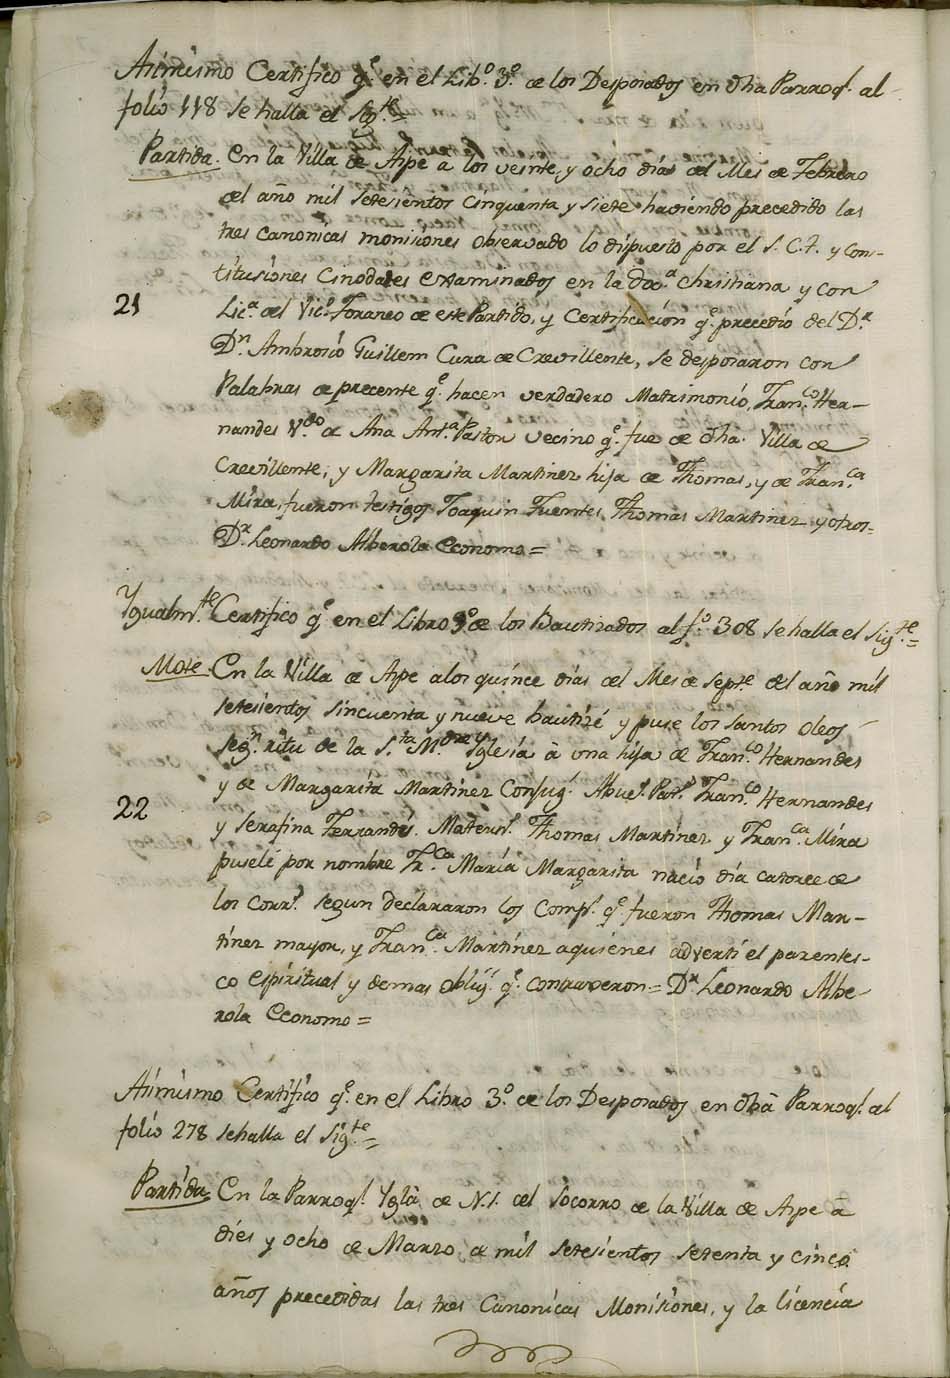 Asimismo Certifico q.e en el Lib.o 3.o de los Desposados en dha Parroq.l al
folio 118 se halla el Sig.te =
Partida. En la Villa de Aspe a los veinte, y ocho dias del Mes de Febrero
del año mil setesientos cinquenta y siete haviendo precedido las
tres canonicas monisiones observado lo dispuesto por el S. C. T. y Cons-
titusiones Cinodales examinados en la Doc.a Christiana y con
21
Lic.a del Vic.o Foraneo de este Partido, y Certificación q.e precedio del D.r
D.n Ambrosio Guillem Cura de Crevillente, se desposaron con
Palabras de precente q.e hacen verdadero Matrimonio, Fran.co Her-
nandes V.do de Ana Ant.a Pastor vecino q.e fue de dha. Villa de
Crevillente, y Margarita Martinez hija de Thomas, y de Fran.ca
Mira, fueron testigos Joaquin Fuentes, Thomas Martinez y otros=
D.r Leonardo Alberola Economo =
Ygualm.te Certifico q.e en el Libro 9.o de los Bautizados al f.o 308 se halla el Sig.te =
Mote En la Villa de Aspe a los quince dias del Mes de Sept.e del año mil
setesientos sincuenta y nueve bautizé y puse los Santos Oleos
seg.n ritu de la S.ta M.dre Yglesia à una hija de Fran.co Hernandes
y de Margarita Martinez Conjug.s Abue.s Pat.s Fran.co Hernandes
22
y Serafina Ferrandis. Matern.s Thomas Martinez y Fran.ca Mira
pusele por nombre Fr.ca María Margarita nacio dia catorce de
los corr.s segun declararon los Comp.s q.e fueron Thomas Mar-
tinez mayor, y Fran.ca Martinez a quienes advertí el parentes-
co espiritual y demas oblig.s q.e contraxeron = D.r Leonardo Albe-
rola Economo =
Asimismo Certifico q.e en el Libro 3.o de los Desposados en dha Parroq.l al
folio 278 se halla el Sig.te =
Partida En la Parroq.l Yglã de N. S. del Socorro de la Villa de Aspe à
dies y ocho de Marzo de mil setesientos setenta y cinco
años precedidas las tres Canonicas Monisiones, y la licencia